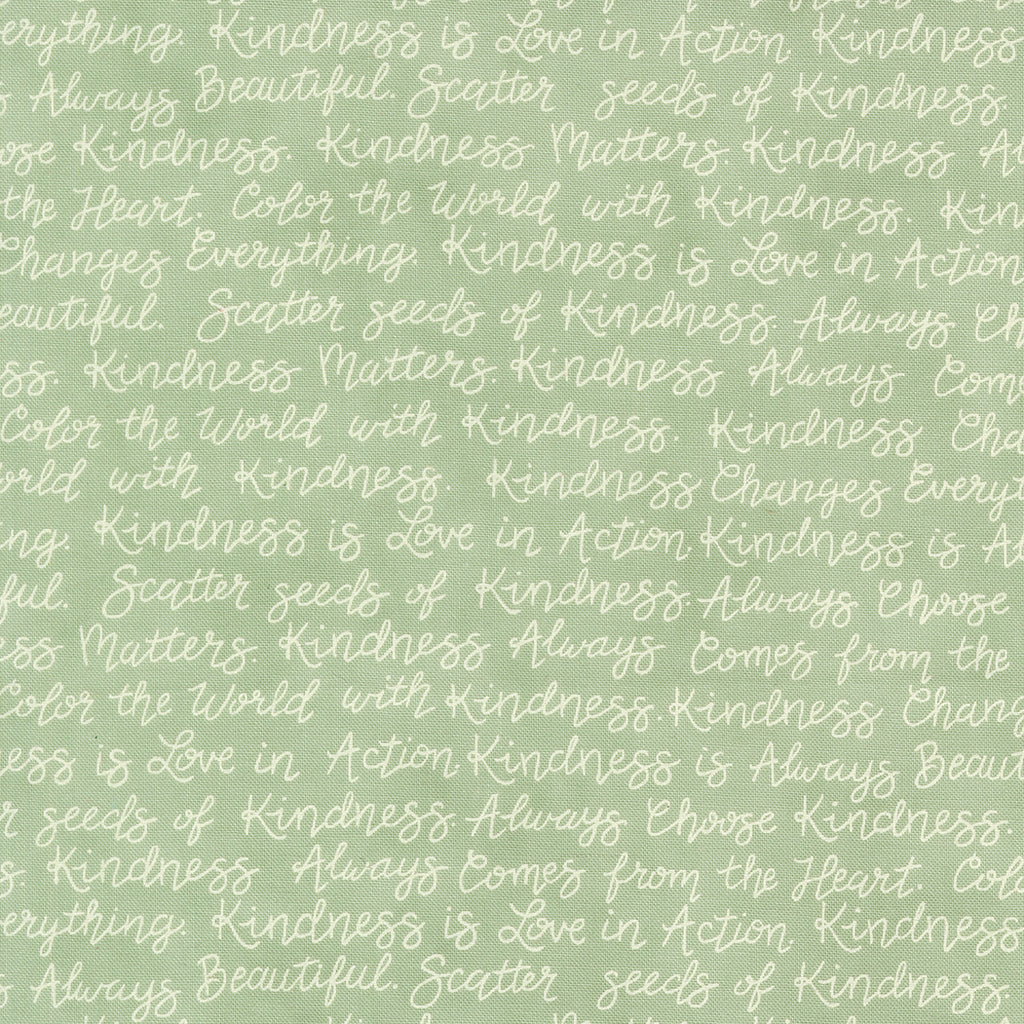 erything. Kindness is Love in Action. Kindness
Always Beautiful. Scatter seeds of Kindness.
ose Kindness. Kindness Matters. Kindness A
the Heart. Color the World with Kindness. Kin
Changes Everything. Kindness is Love in Action
eautiful. Scatter seeds of Kindness. Always Ch
ss. Kindness Matters. Kindness Always Com
Color the World with Kindness. Kindness Cha
orld with Kindness. Kindness Changes Everyt
ng. Kindness is Love in Action. Kindness is Al
ful. Scatter seeds of Kindness. Always Choose
ss Matters. Kindness Always Comes from the
Color the World with Kindness. Kindness Chang
ess is Love in Action. Kindness is Always Beaut
r seeds of Kindness. Always Choose Kindness.
s. Kindness Always Comes from the Heart. Colo
erything. Kindness is Love in Action. Kindness
Always Beautiful. Scatter seeds of Kindness.